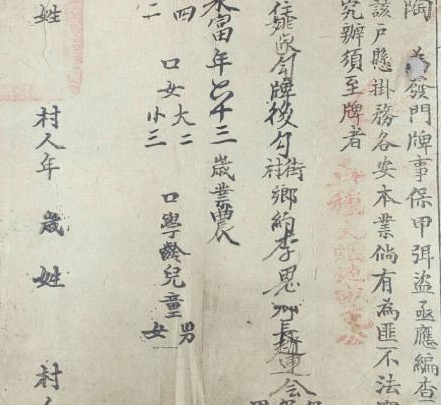 陶 為發門牌事保甲弭盜亟應編查
該戶懸掛務各安本業倘有為匪不法
究辦須至牌者
牌後勾 街村 鄉約李思 長趙連會
富年六十三歲業農
四 口女大二小三 口學齡兒童男女
二
姓 村人年 歲 姓 村